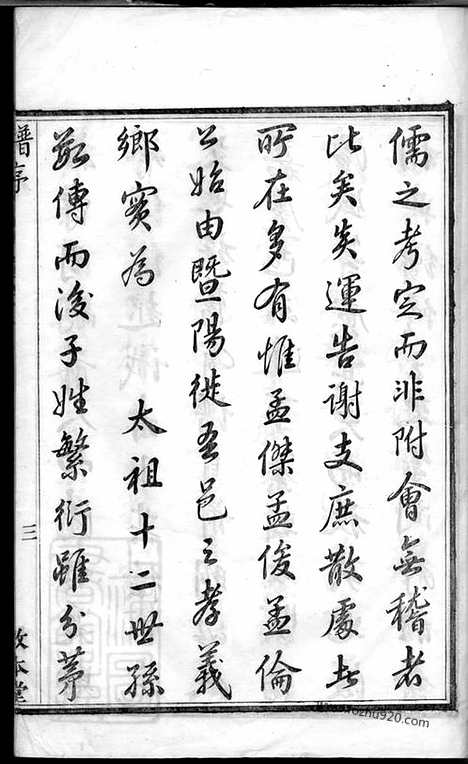 儒之考定而非附會無稽者
比矣矣運告謝支庶散處者
所在多有惟孟傑孟俊孟倫
公始由暨陽徙吾邑之孝義
鄉實為　太祖十二世孫
數傳而後子姓繁衍雖分茅
譜序
三
敦本堂